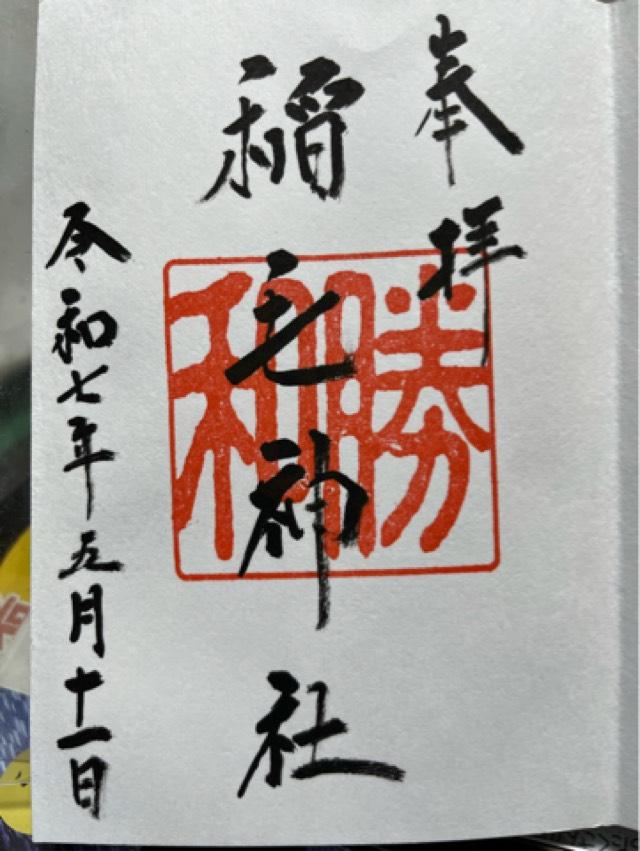 奉拝
稲毛神社
勝利
令和七年五月十一日